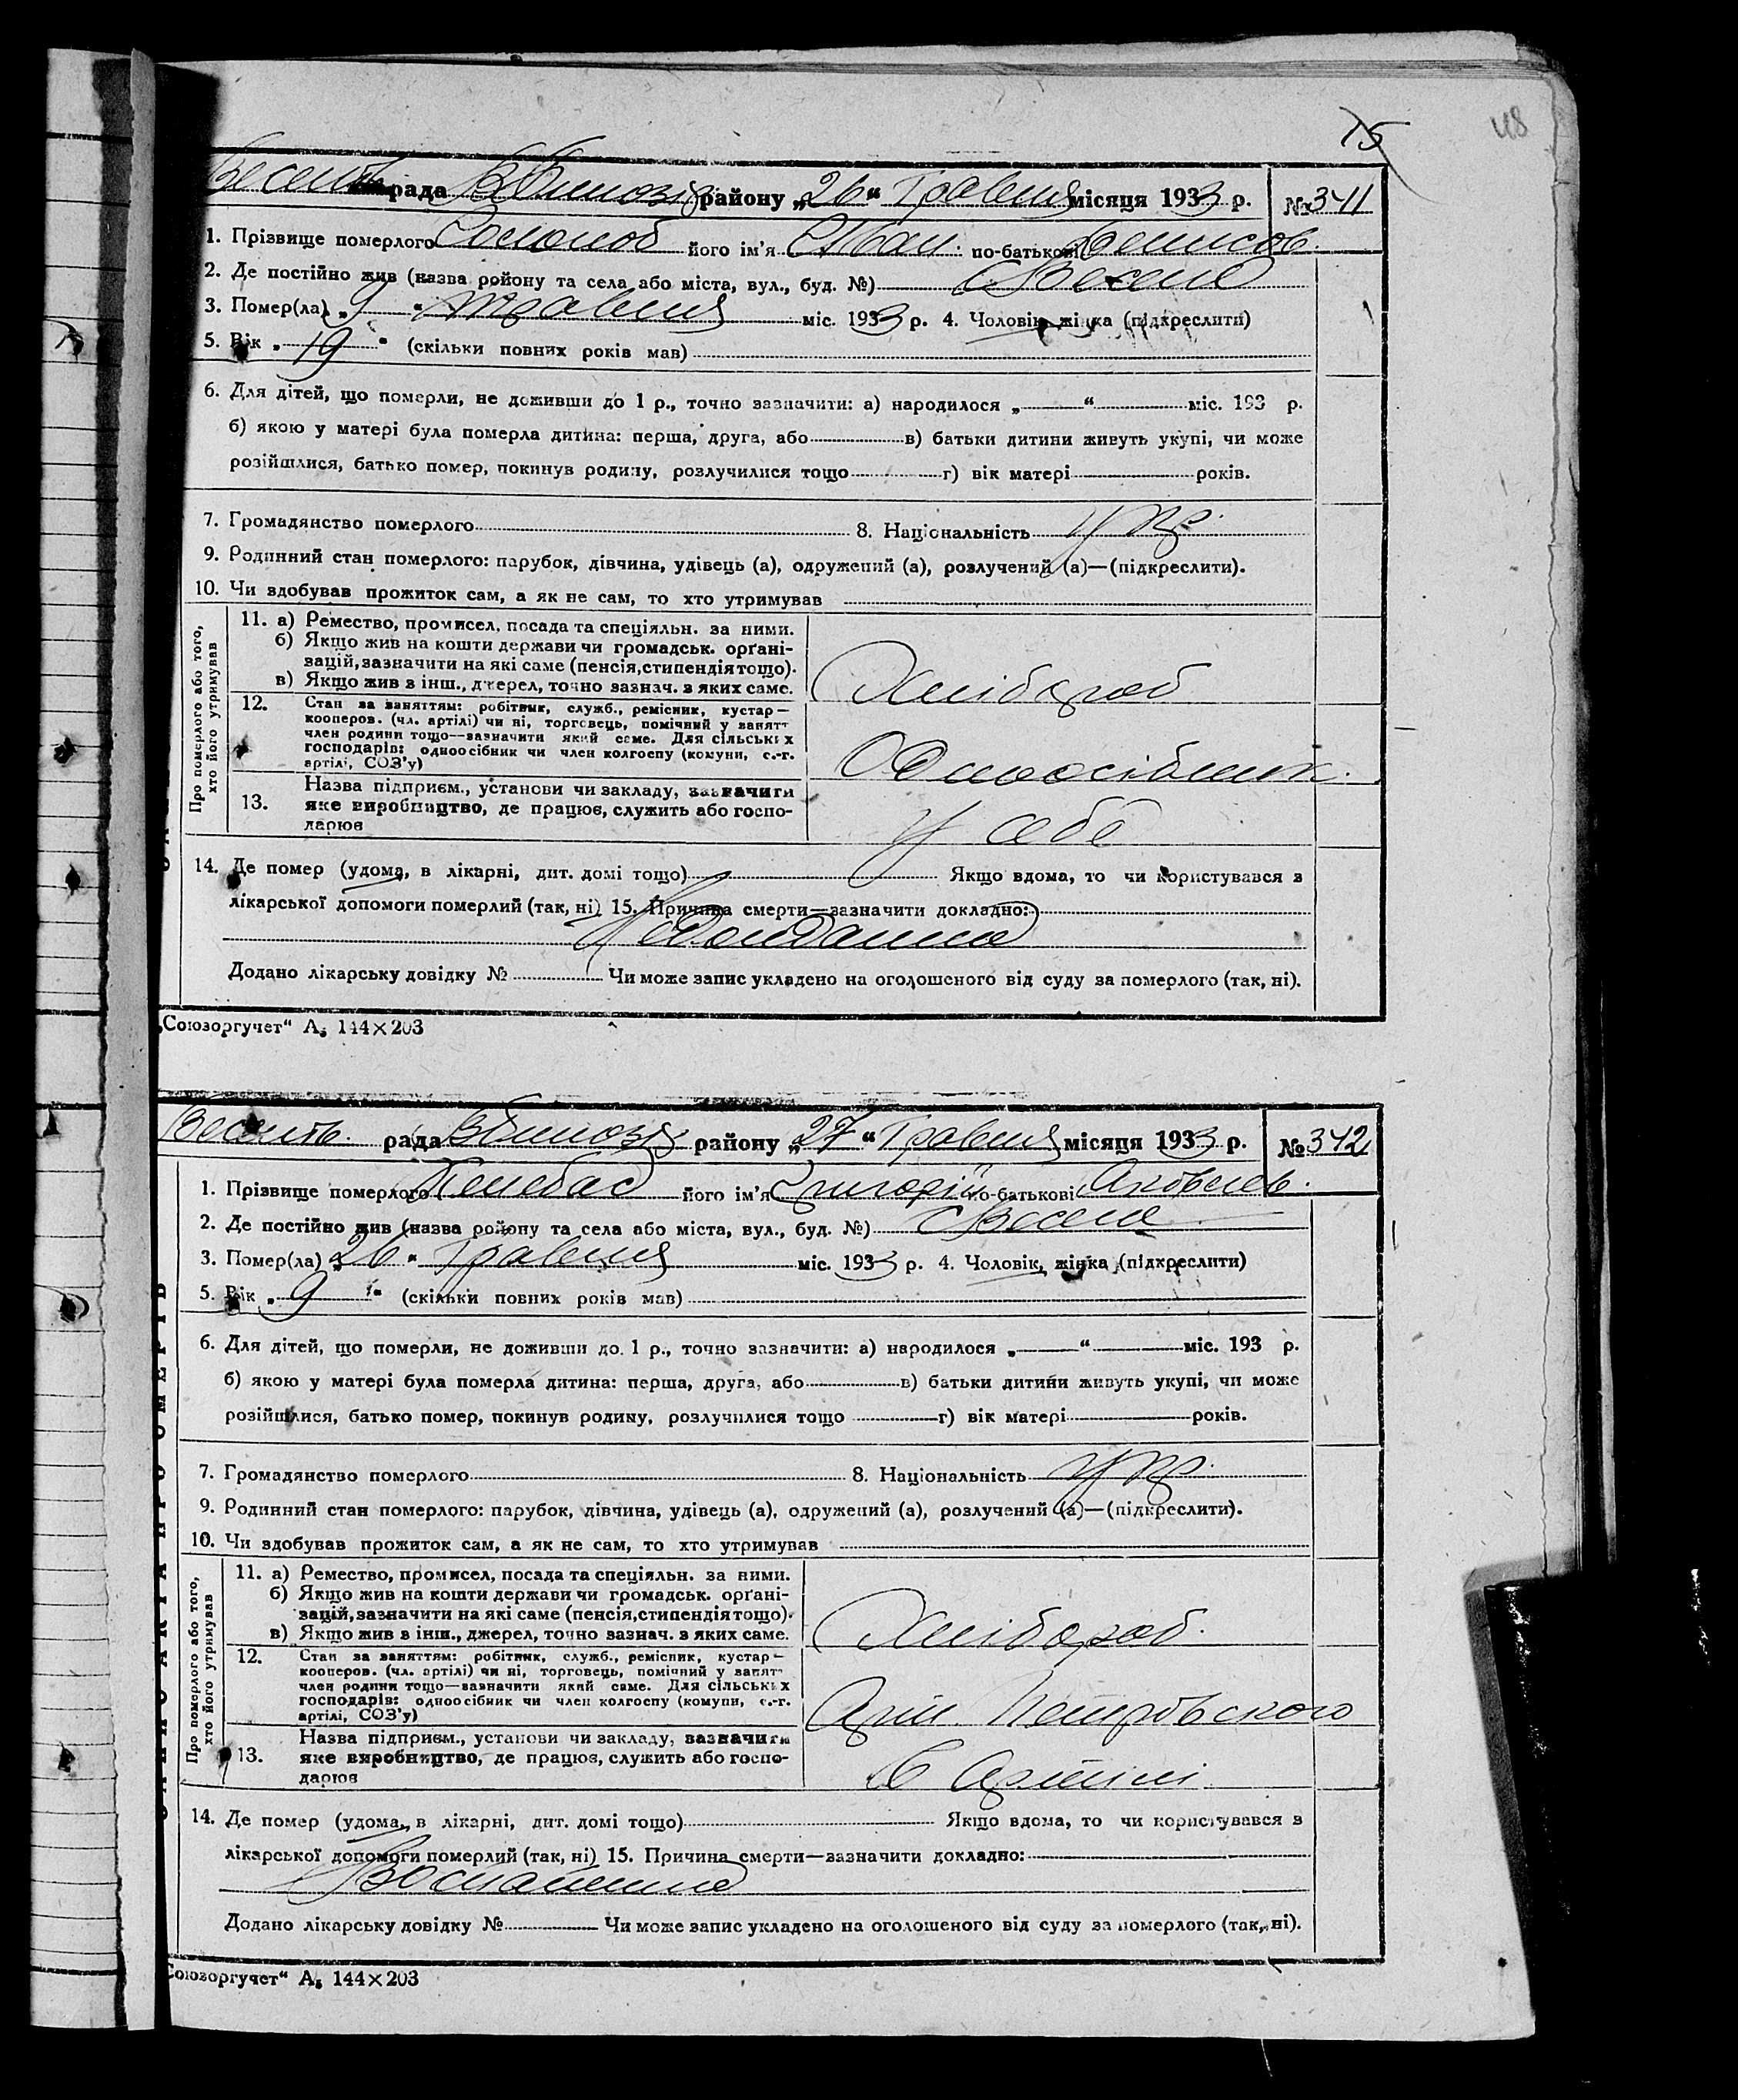 48
15
рада району „26“ Травня місяця 1933 р. №341
1. Прізвище померлого його ім'я по-батькові Денисов.
2. Де постійно жив (назва ройону та села або міста, вул., буд. №) с Веселе
3. Помер(ла) „9 " травня міс. 1933 р. 4. Чоловік, жінка (підкреслити)
5. Вік „ 19 " (скільки повних років мав)
6. Для дітей, що померли, не доживши до 1 р., точно зазначити: а) народилося „ “ міс. 193 р.
б) якою у матері була померла дитина: перша, друга, або в) батьки дитини живуть укупі, чи може
розійшлися, батько помер, покинув родину, розлучилися тощо г) вік матері років.
7. Громадянство померлого 8. Національність укр.
9. Родинний стан померлого: парубок, дівчина, удівець (а), одружений (а), розлучений (а)—(підкреслити).
10. Чи здобував прожиток сам, а як не сам, то хто утримував
Про померлого або того,
хто його утримував
11. а) Ремество, промисел, посада та спеціяльн. за ними.
б) Якщо жив на кошти держави чи громадськ. орґані-
зацій, зазначити на які саме (пенсія, стипендія тощо).
в) Якщо жив з інш., джерел, точно зазнач. з яких саме.
Хлібороб
12. Стан за заняттям: робітник, служб., ремісник, кустар—
кооперов. (чл. артілі) чи ні, торговець, помічний у занятт
член родини тощо—зазначити який саме. Для сільських
господарів: одноосібник чи член колгоспу (комуни, с.-г.
артілі, СОЗ'у)
Одноосібник.
13. Назва підприєм., установи чи закладу, зазначити
яке виробництво, де працює, служить або госпо-
дарює
у себе
14. Де помер (удома, в лікарні, дит. домі тощо) Якщо вдома, то чи користувався з
лікарської допомоги померлий (так, ні) 15. Причина смерти—зазначити докладно:
Додано лікарську довідку № Чи може запис укладено на оголошеного від суду за померлого (так, ні).
„Союзоргучет“ А₅ 144×203
рада району „27“ Травня місяця 1933 р. №342
1. Прізвище померлого його ім'я Григорій по-батькові Яковлев.
2. Де постійно жив (назва ройону та села або міста, вул., буд. №) с Веселе
3. Помер(ла) „26 " Травня міс. 1933 р. 4. Чоловік, жінка (підкреслити)
5. Вік „ 9 " (скільки повних років мав)
6. Для дітей, що померли, не доживши до 1 р., точно зазначити: а) народилося „ “ міс. 193 р.
б) якою у матері була померла дитина: перша, друга, або в) батьки дитини живуть укупі, чи може
розійшлися, батько помер, покинув родину, розлучилися тощо г) вік матері років.
7. Громадянство померлого 8. Національність укр.
9. Родинний стан померлого: парубок, дівчина, удівець (а), одружений (а), розлучений (а)—(підкреслити).
10. Чи здобував прожиток сам, а як не сам, то хто утримував
Про померлого або того,
хто його утримував
11. а) Ремество, промисел, посада та спеціяльн. за ними.
б) Якщо жив на кошти держави чи громадськ. орґані-
зацій, зазначити на які саме (пенсія, стипендія тощо).
в) Якщо жив з інш., джерел, точно зазнач. з яких саме.
Хлібороб.
12. Стан за заняттям: робітник, служб., ремісник, кустар—
кооперов. (чл. артілі) чи ні, торговець, помічний у занятт
член родини тощо—зазначити який саме. Для сільських
господарів: одноосібник чи член колгоспу (комуни, с.-г.
артілі, СОЗ'у)
Арт. Петровского
13. Назва підприєм., установи чи закладу, зазначити
яке виробництво, де працює, служить або госпо-
дарює
в Артілі
14. Де помер (удома, в лікарні, дит. домі тощо) Якщо вдома, то чи користувався з
лікарської допомоги померлий (так, ні) 15. Причина смерти—зазначити докладно:
Воспаление
Додано лікарську довідку № Чи може запис укладено на оголошеного від суду за померлого (так, ні).
Союзоргучет“ А₅ 144×203
САМО АКТА ПРО СМЕРТЬ